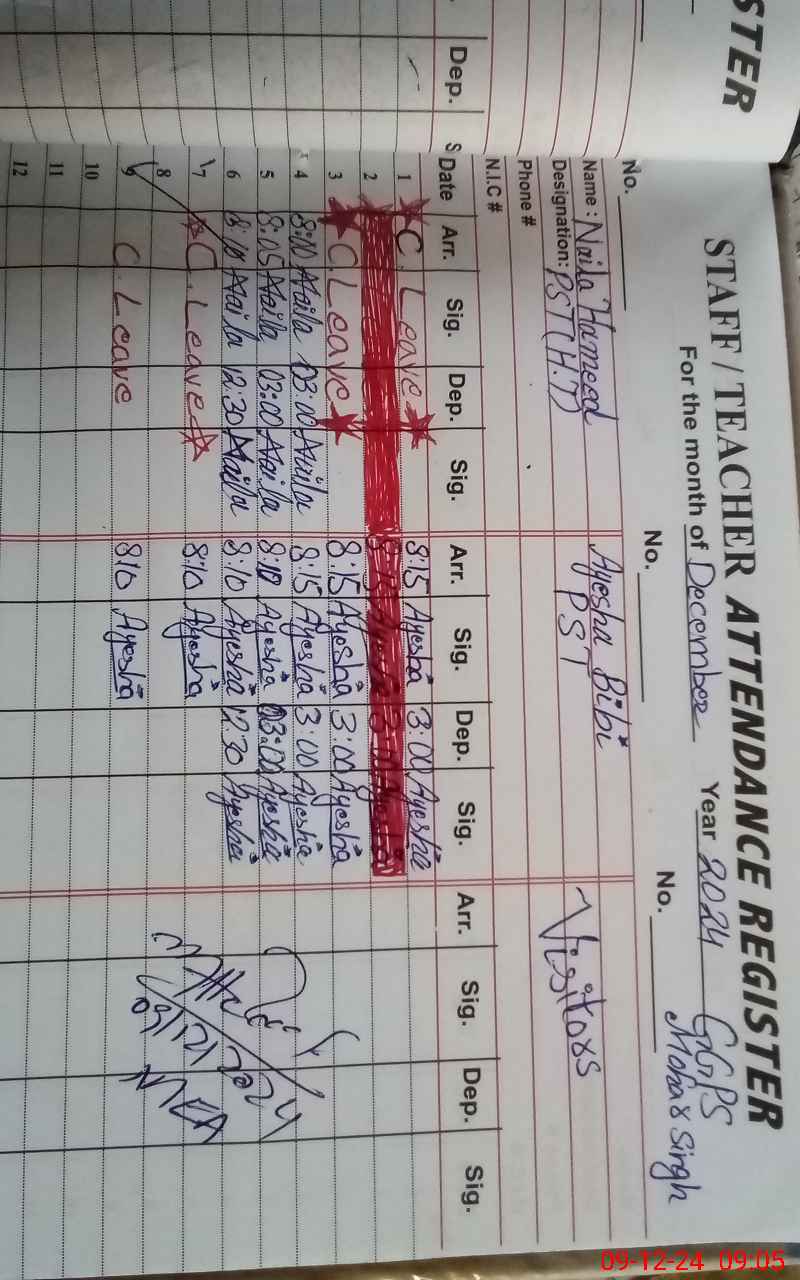 STER
Dep.
S
STAFF / TEACHER ATTENDANCE REGISTER
For the month of December Year 2024 GGPS
Mohar Singh
No. No. No.
Name : Naila Hameed Ayesha Bibi Visitors
Designation: PST (H.T) PST
Phone #
N.I.C #
Date Arr. Sig. Dep. Sig. Arr. Sig. Dep. Sig. Arr. Sig. Dep. Sig.
1 C. Leave 8:15 Ayesha 3:00 Ayesha
2
3 C. Leave 8:15 Ayesha 3:00 Ayesha
4 8:00 Naila 03:00 Naila 8:15 Ayesha 3:00 Ayesha
5 8:05 Naila 03:00 Naila 8:10 Ayesha 03:00 Ayesha
6 8:10 Naila 12:30 Naila 8:10 Ayesha 12:30 Ayesha
7 C. Leave 8:10 Ayesha
8
9 C. Leave 8:10 Ayesha
10
11
12
09/12/2024
MEA
09-12-24 09:05